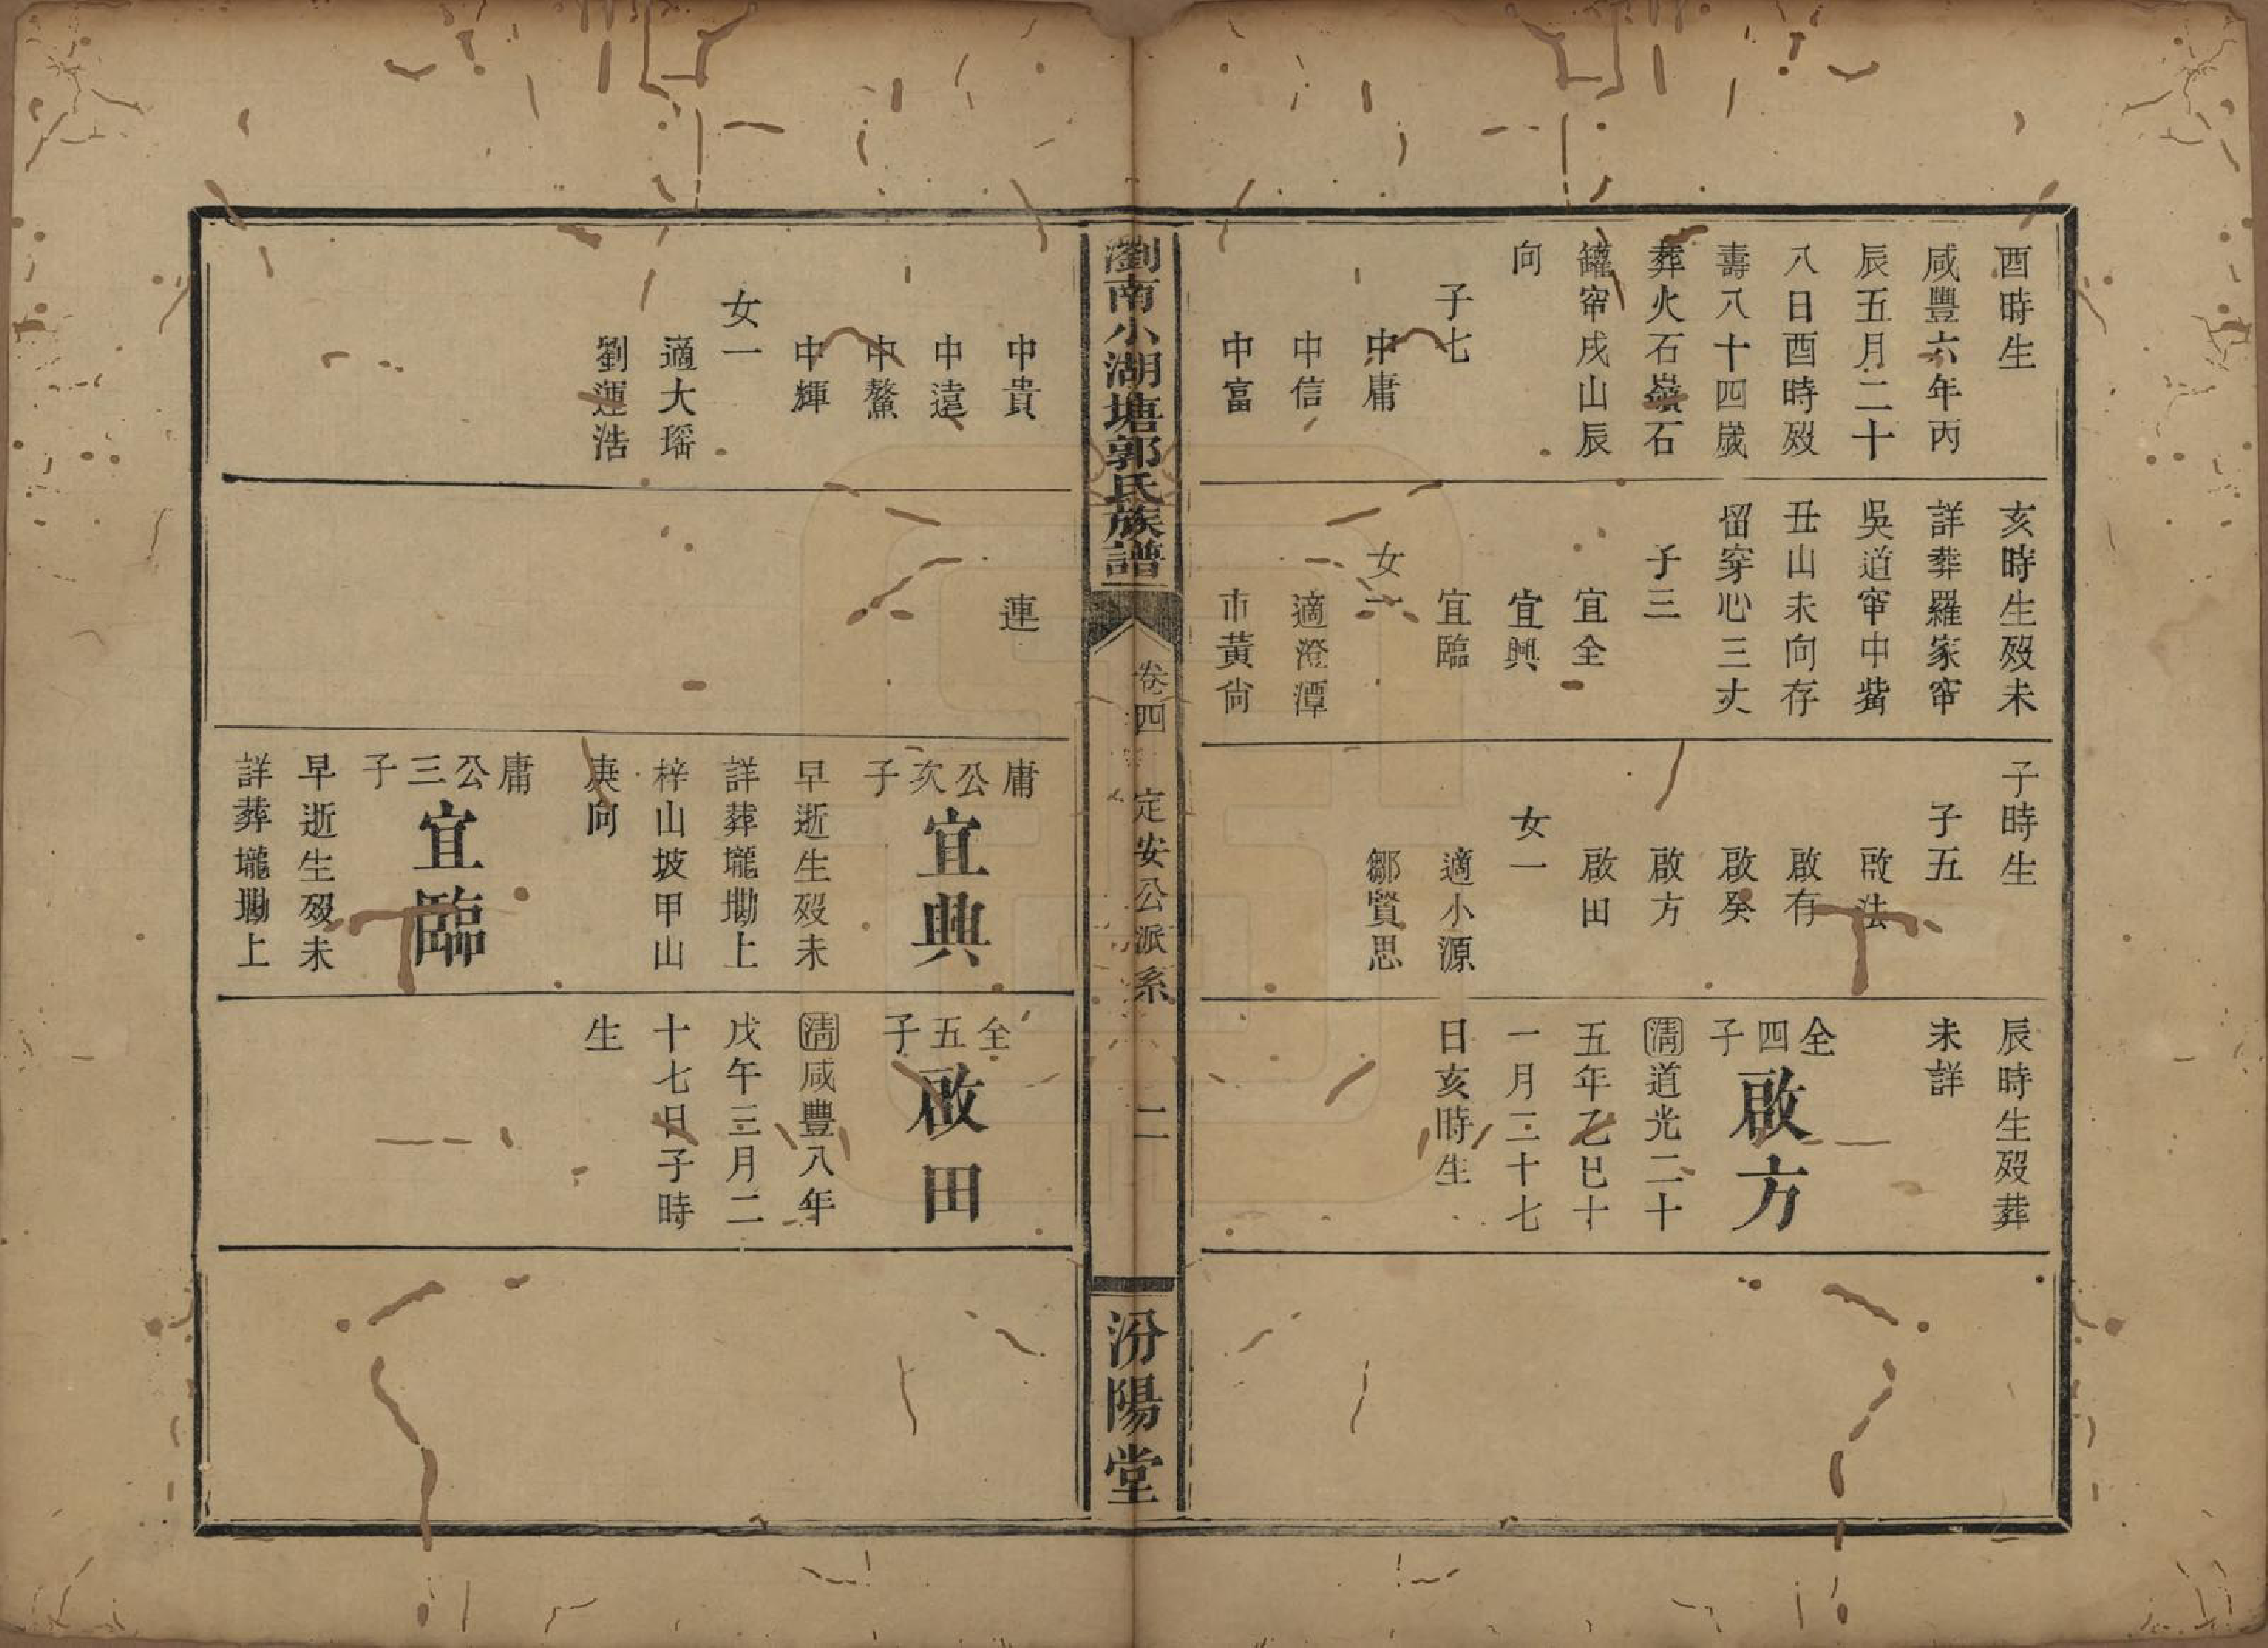 酉時生
咸豐六年丙
辰五月二十
八日酉時歿
壽八十四歲
葬火石嶺石
罐窀戌山辰
向
子七
中庸
中信
中富
亥時生歿未
詳葬羅家窀
吳道窀中嘴
丑山未向存
留穿心三丈
子三
宜全
宜興
宜臨
女一
適澄潭
市黃尙
子時生
子五
啟法
啟有
啟癸
啟方
啟田
女一
適小源
鄒賢思
辰時生歿葬
未詳
全四子
啟方
淸道光二十
五年乙巳十
一月二十七
日亥時生
瀏南小湖塘郭氏族譜
卷四
定安公派系
二
汾陽堂
中貴
中遠
中鰲
中輝
女一
適大瑤
劉運浩
連
庸公次子
宜興
早逝生歿未
詳葬壠塅上
梓山坡甲山
庚向
庸公三子
宜臨
早逝生歿未
詳葬壠塅上
全五子
啟田
淸咸豐八年
戊午三月二
十七日子時
生